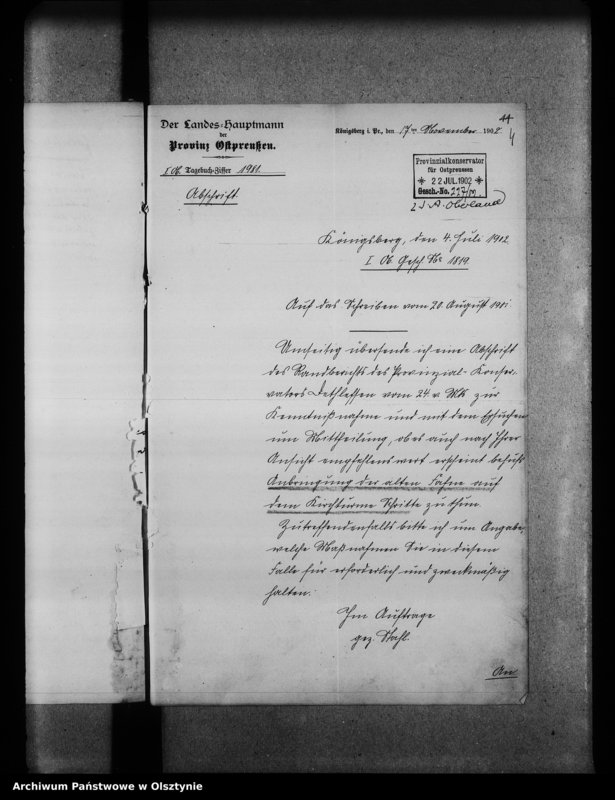 44
4
Der Landes-Hauptmann
der
Provinz Ostpreußen.
I Ob. Tagebuch-Ziffer 1981.
Abschrift.
Königsberg i. Pr., den 17ten November 1902.
Provinzialkonservator
für Ostpreussen
22 JUL. 1902
Gesch.-No.
Königsberg, den 4. Juli 1902
I. Ob. Gesch. No 1819.
Auf das Schreiben vom 20. August 1901.
Umseitig übersende ich eine Abschrift
des Randberichts des Provinzial-Konser-
vators Dethlefsen vom 24. v. Mts zur
Kenntnißnahme und mit dem Ersuchen
um Mittheilung, ob es auch nach Ihrer
Ansicht empfehlenswert erscheint behufs
Anbringung der alten Fahne auf
dem Kirchturme Schritte zu thun.
Zutreffendenfalls bitte ich um Angabe,
welche Maßnahmen Sie in diesem
Falle für erforderlich und zweckmäßig
halten.
Im Auftrage
gez. Stahl.
An
Archiwum Państwowe w Olsztynie